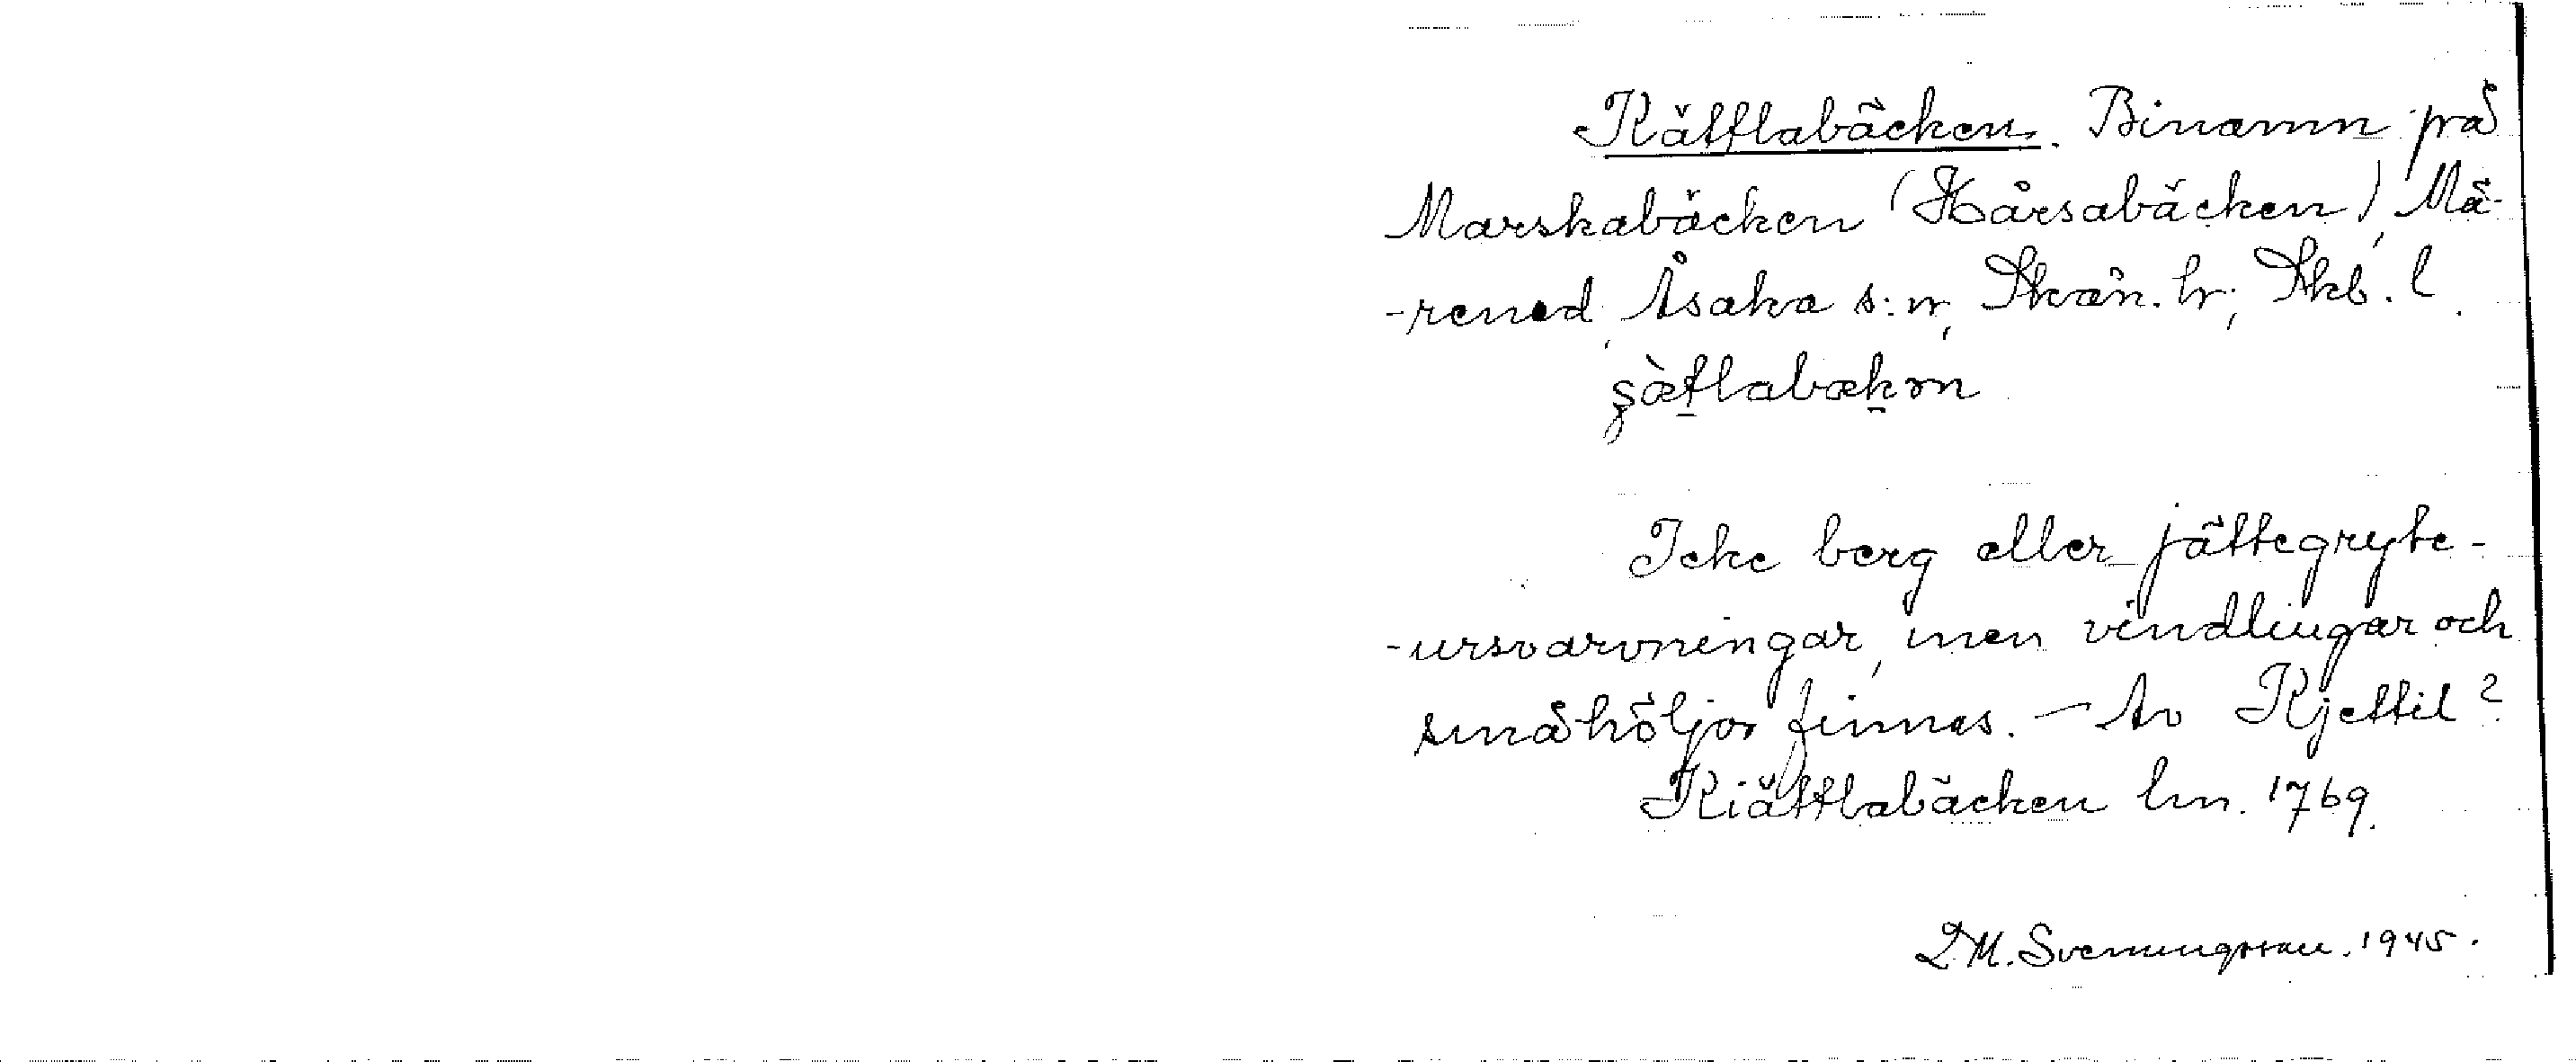 Kättlabäcken. Binamn på
Marskabäcken (Hårsabäcken), Mä-
-rened, Åsaka s:n, Skån. hr, Skb. l.
şàtlabækən
Icke berg eller jättegryte-
-ursvarvningar, men vindlingar och
småhöljor finnas. – Av Kjettil?
Kiättlabäcken lm. 1769.
D.M. Svenungsson. 1945.